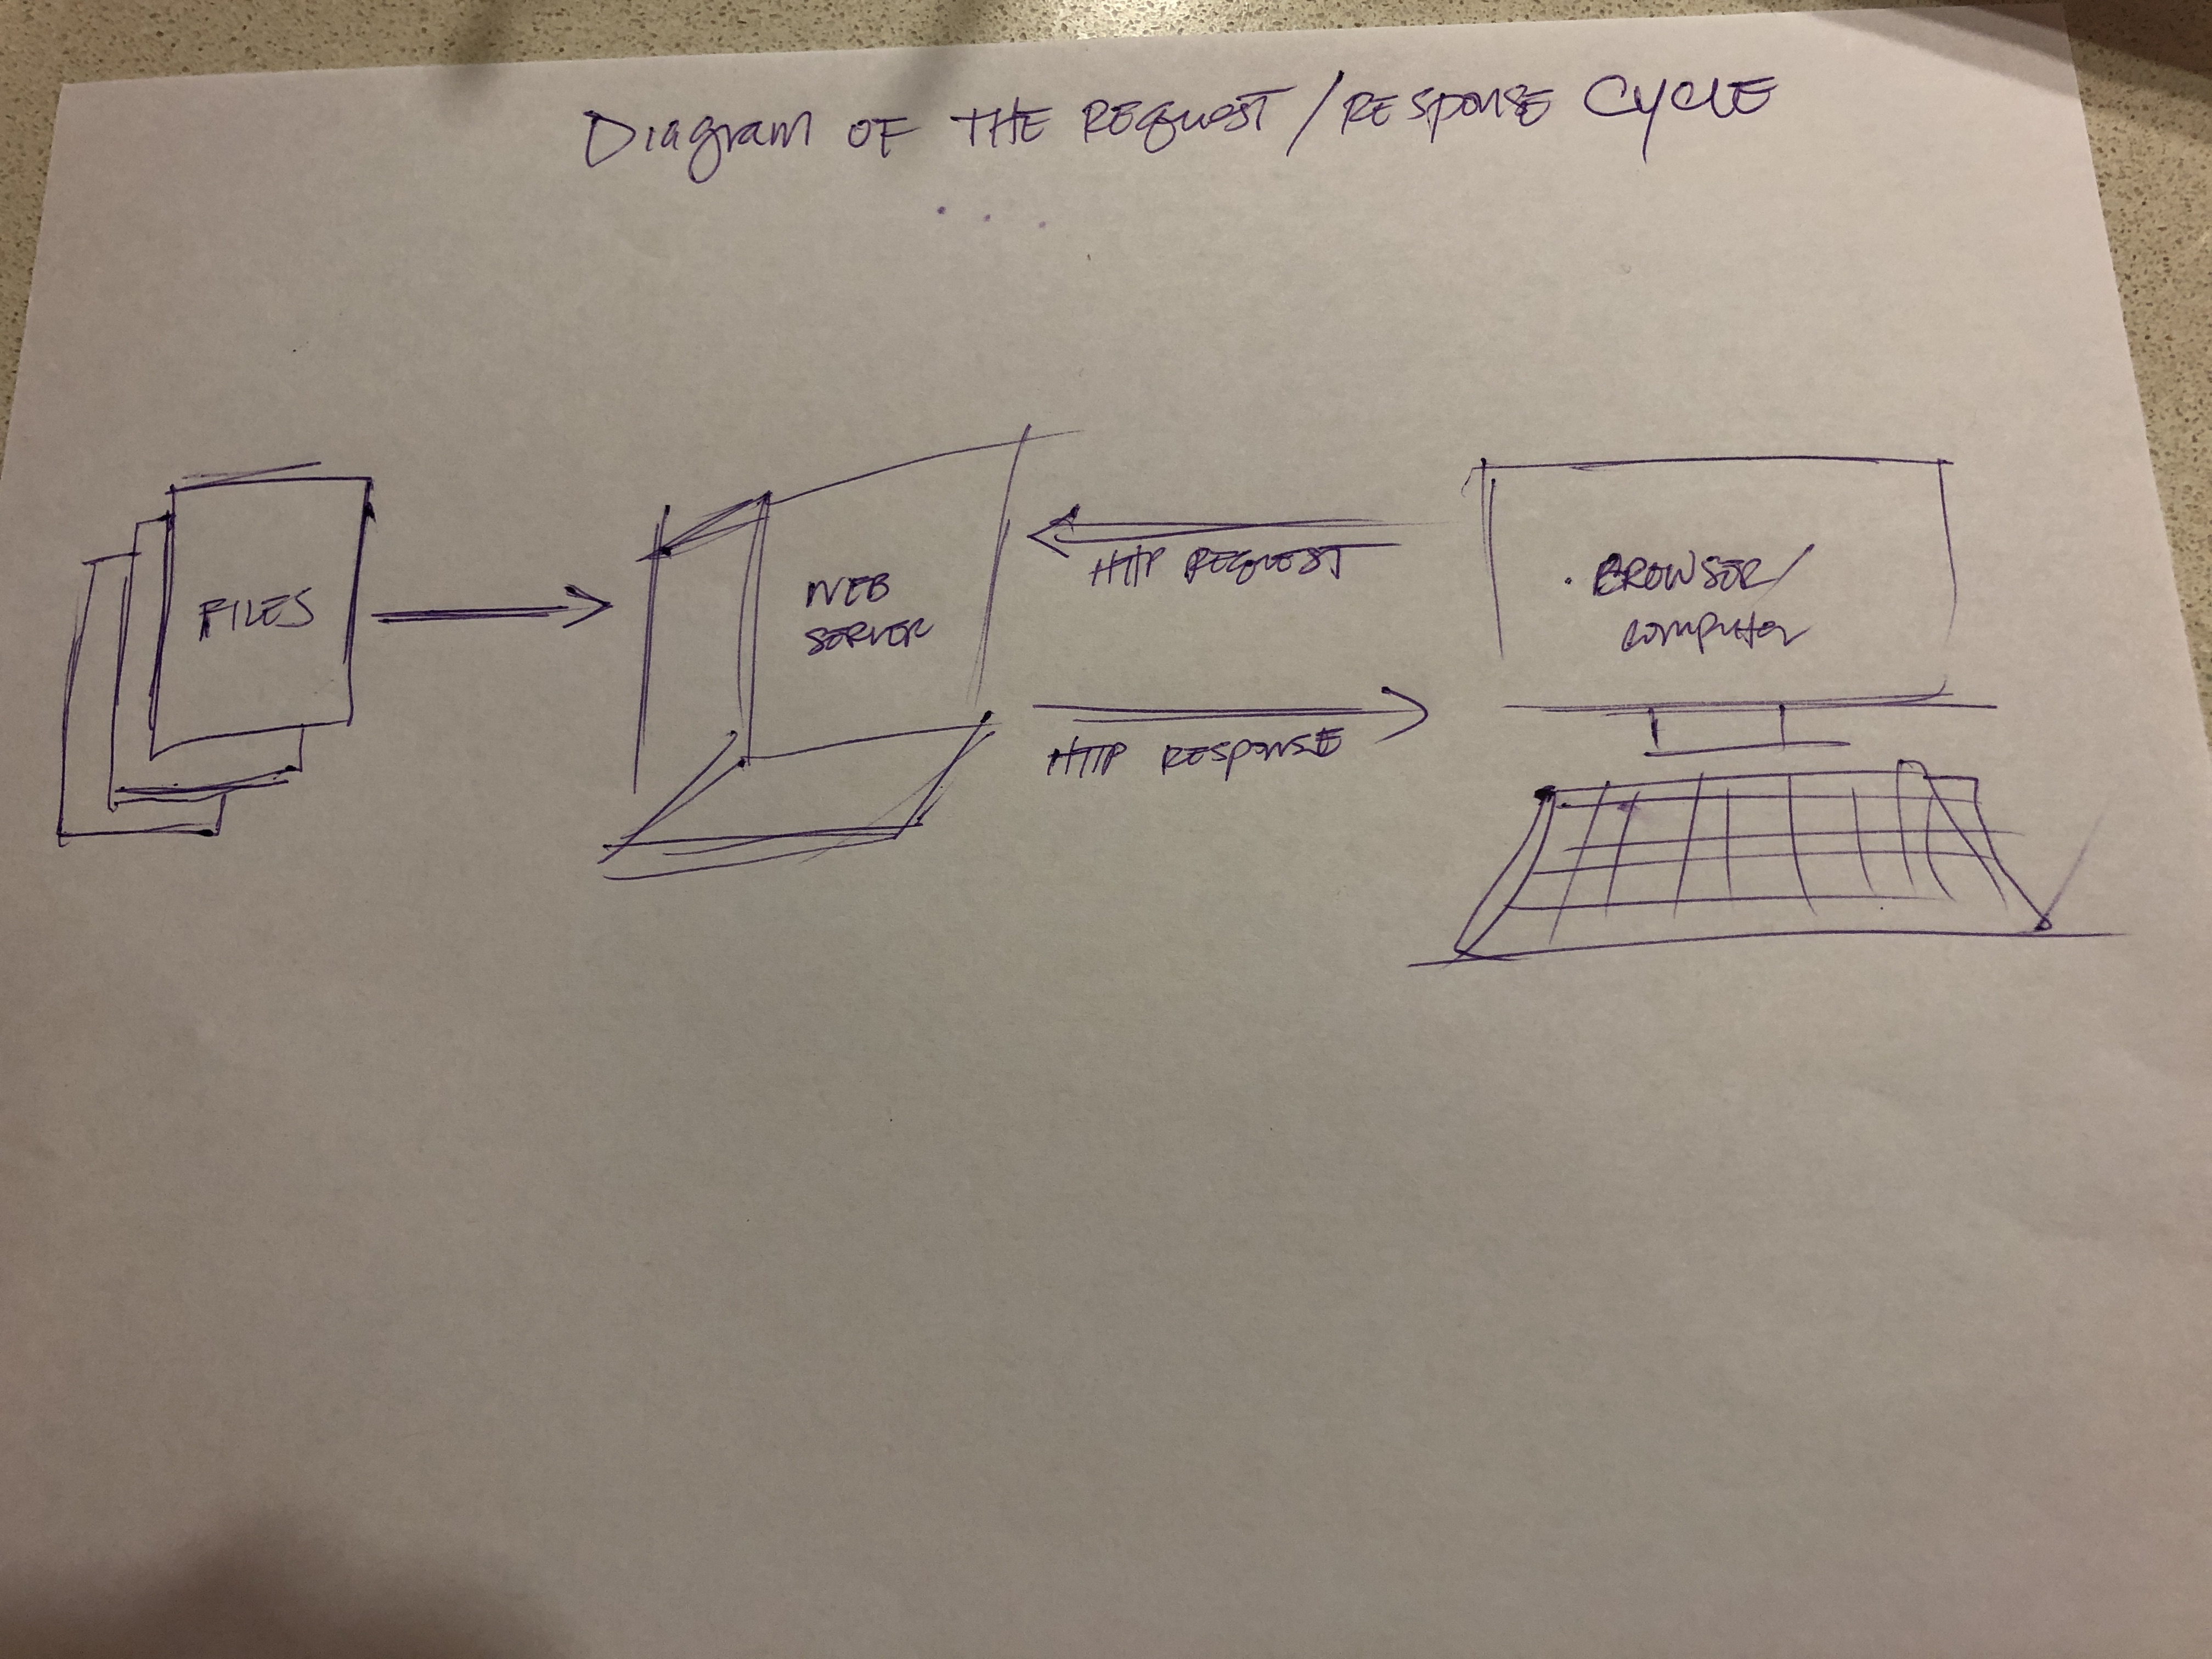 Diagram OF THE REQUEST/RESPONSE CYCLE
FILES
WEB
SERVER
HTTP REQUEST
HTTP RESPONSE
BROWSER/
computer